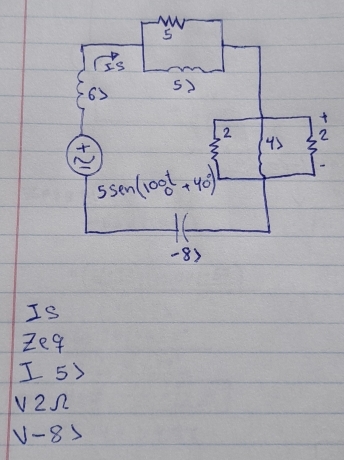 5
Is
5j
6j
+
2
4j
+
2
-
5 sen(100t + 40°)
-8j
Is
Zeq
I 5j
V2Ω
V-8j